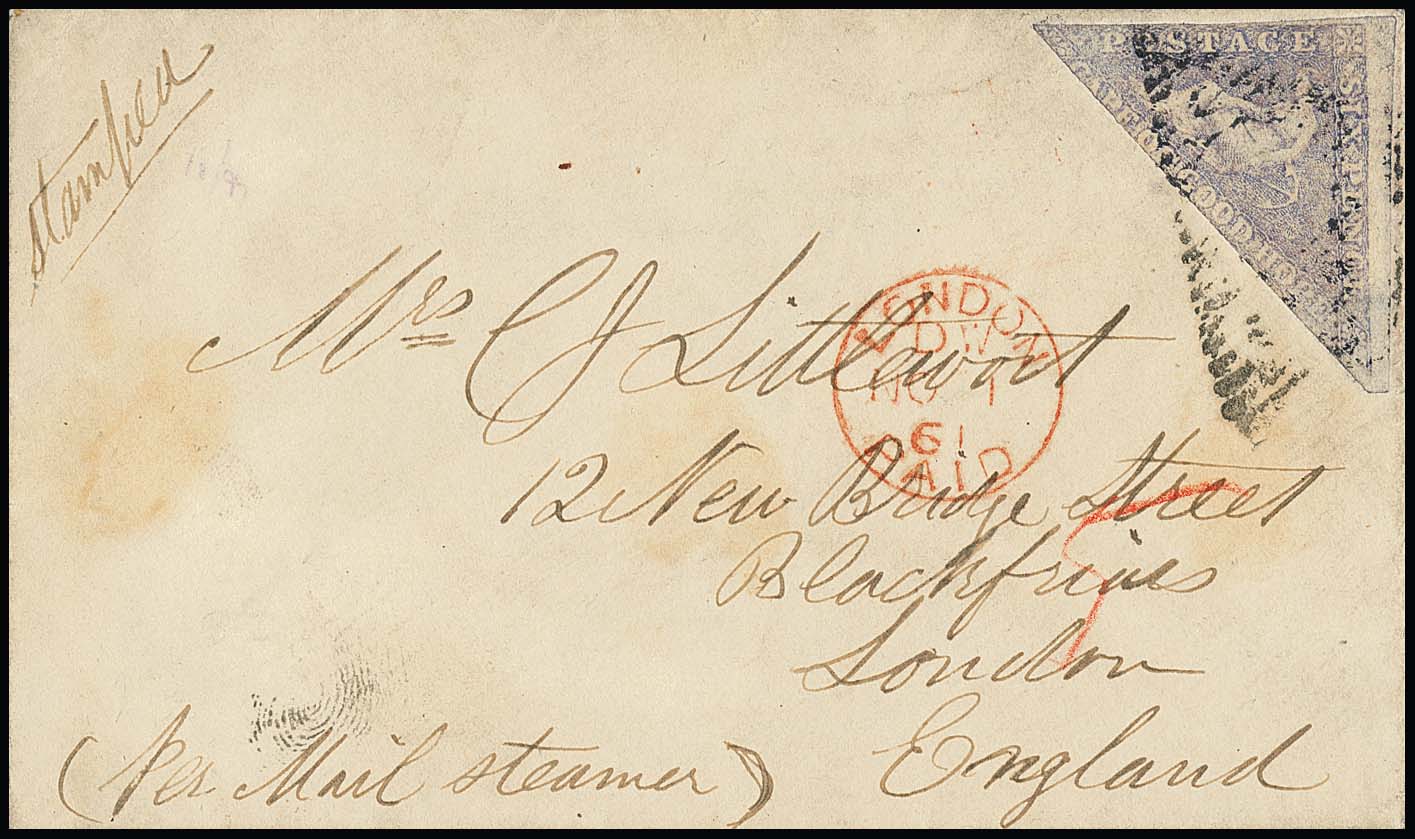 stamped
POSTAGE
SIX PENCE
CAPE OF GOOD HOPE
LONDON
DW
NO 1
61
PAID
Mrs C J Littlewort
12 New Bridge Street
Blackfriars
London
England
(Per Mail steamer)